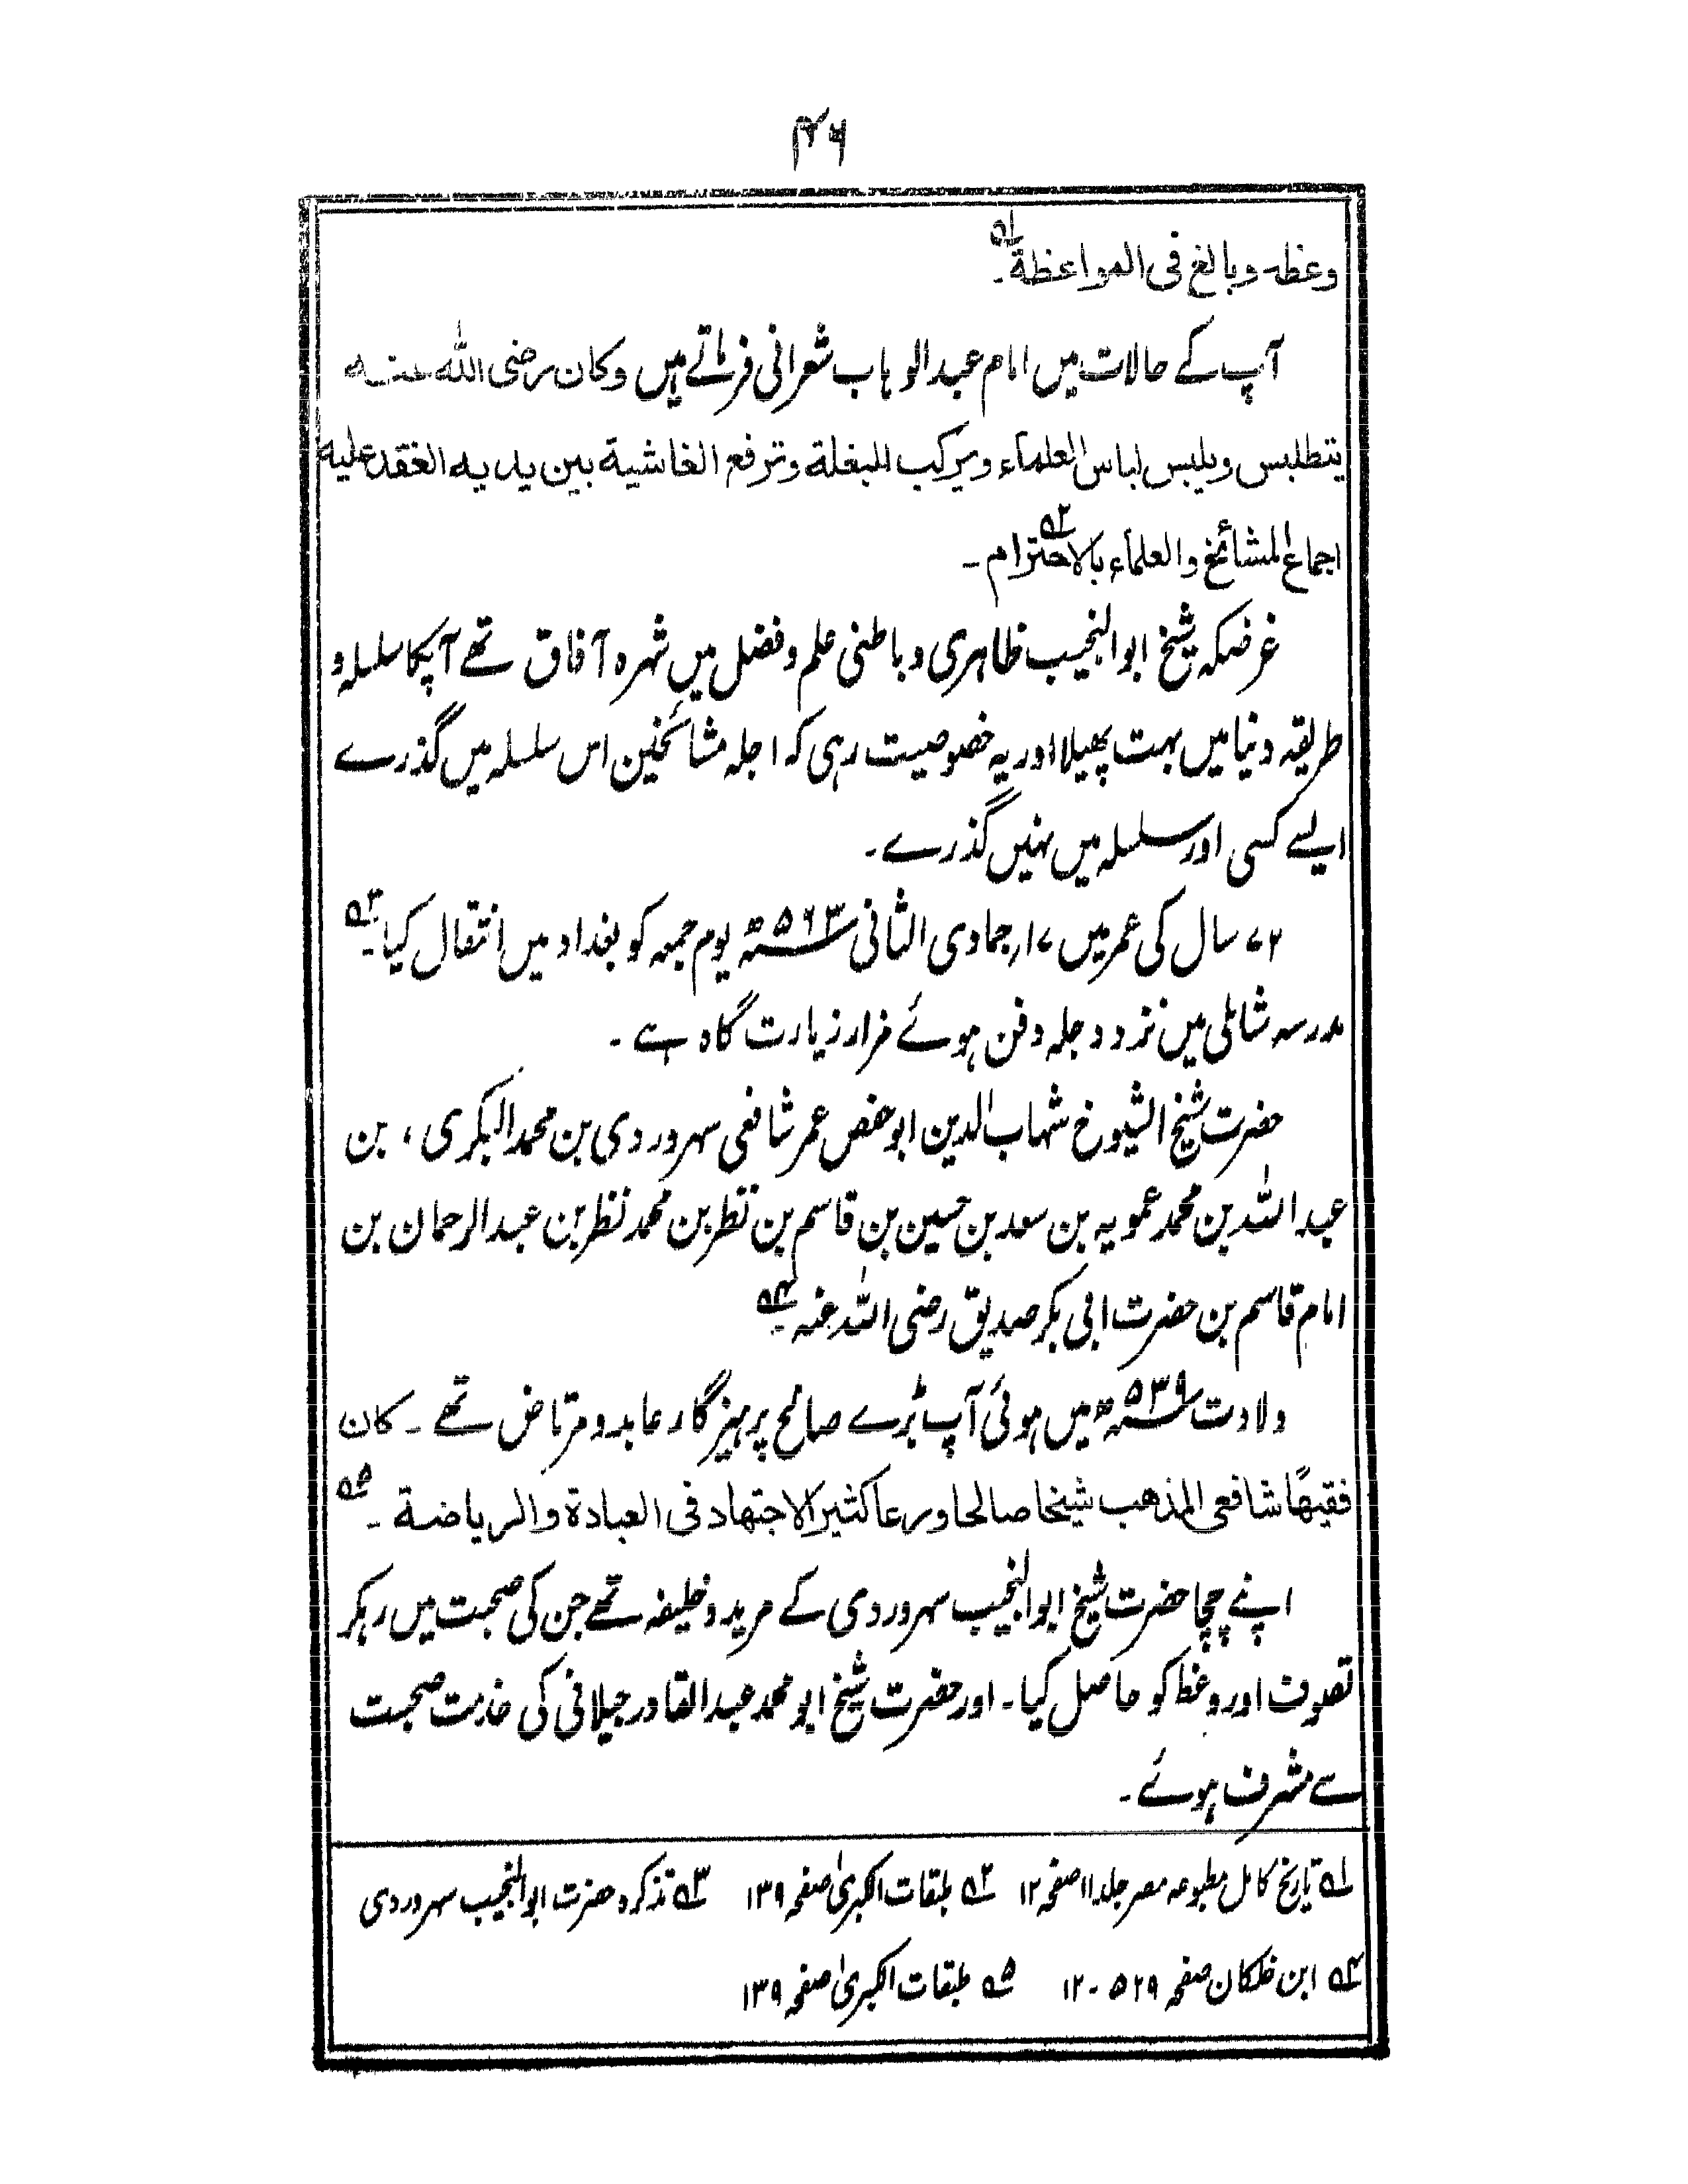 ۴۶
وعظه وبالغ فی المواعظة۔ ۱؎
آپ کے حالات میں امام عبدالوہاب شعرانی فرماتے ہیں وکان رضی اللہ عنہ
یتطلبس ویلبس لباس العلماء ویرکب البغلة وترفع الغاشیة بین یدیہ انعقد علیہ
اجماع المشائخ والعلماء بالاحترام۔ ۲؎
غرضکہ شیخ ابوالنجیب ظاہری و باطنی علم و فضل میں شہرہ آفاق تھے آپکا سلسلہ و
طریقہ دنیا میں بہت پھیلا اور یہ خصوصیت رہی کہ اجلہ مشائخین اس سلسلہ میں گذرے
ایسے کسی اور سلسلہ میں نہیں گذرے۔
۷۲ سال کی عمر میں ۱۷؍جمادی الثانی ۵۶۳ھ یوم جمعہ کو بغداد میں انتقال کیا۔ ۳؎
مدرسہ شاملی میں نزد دجلہ دفن ہوئے مزار زیارت گاہ ہے۔
حضرت شیخ الشیوخ شہاب الدین ابو حفص عمر شافعی سہروردی بن محمد البکری، بن
عبداللہ بن محمد عمویہ بن سعد بن حسین بن قاسم بن نظر بن محمد نظر بن عبدالرحمان بن
امام قاسم بن حضرت ابی بکر صدیق رضی اللہ عنہ۔ ۴؎
ولادت ۵۳۹ھ میں ہوئی آپ بڑے صالح پرہیزگار عابد و مرتاض تھے۔ کان
فقیھًا شافعی المذھب شیخا صالحا ورعا کثیر الاجتھاد فی العبادة والریاضة۔ ۵؎
اپنے چچا حضرت شیخ ابوالنجیب سہروردی کے مرید و خلیفہ تھے جن کی صحبت میں رہکر
تصوف اور وعظ کو حاصل کیا۔ اور حضرت شیخ ابو محمد عبدالقادر جیلانی کی خدمت صحبت
سے مشرف ہوئے۔
۱؎ تاریخ کامل مطبوعہ مصر جلد ۱۱ صفحہ ۱۲ ۲؎ طبقات الکبریٰ صفحہ ۱۳۹ ۳؎ تذکرہ حضرت ابوالنجیب سہروردی
۴؎ ابن خلکان صفحہ ۵۲۹ ۔ ۱۲ ۵؎ طبقات الکبریٰ صفحہ ۱۳۹